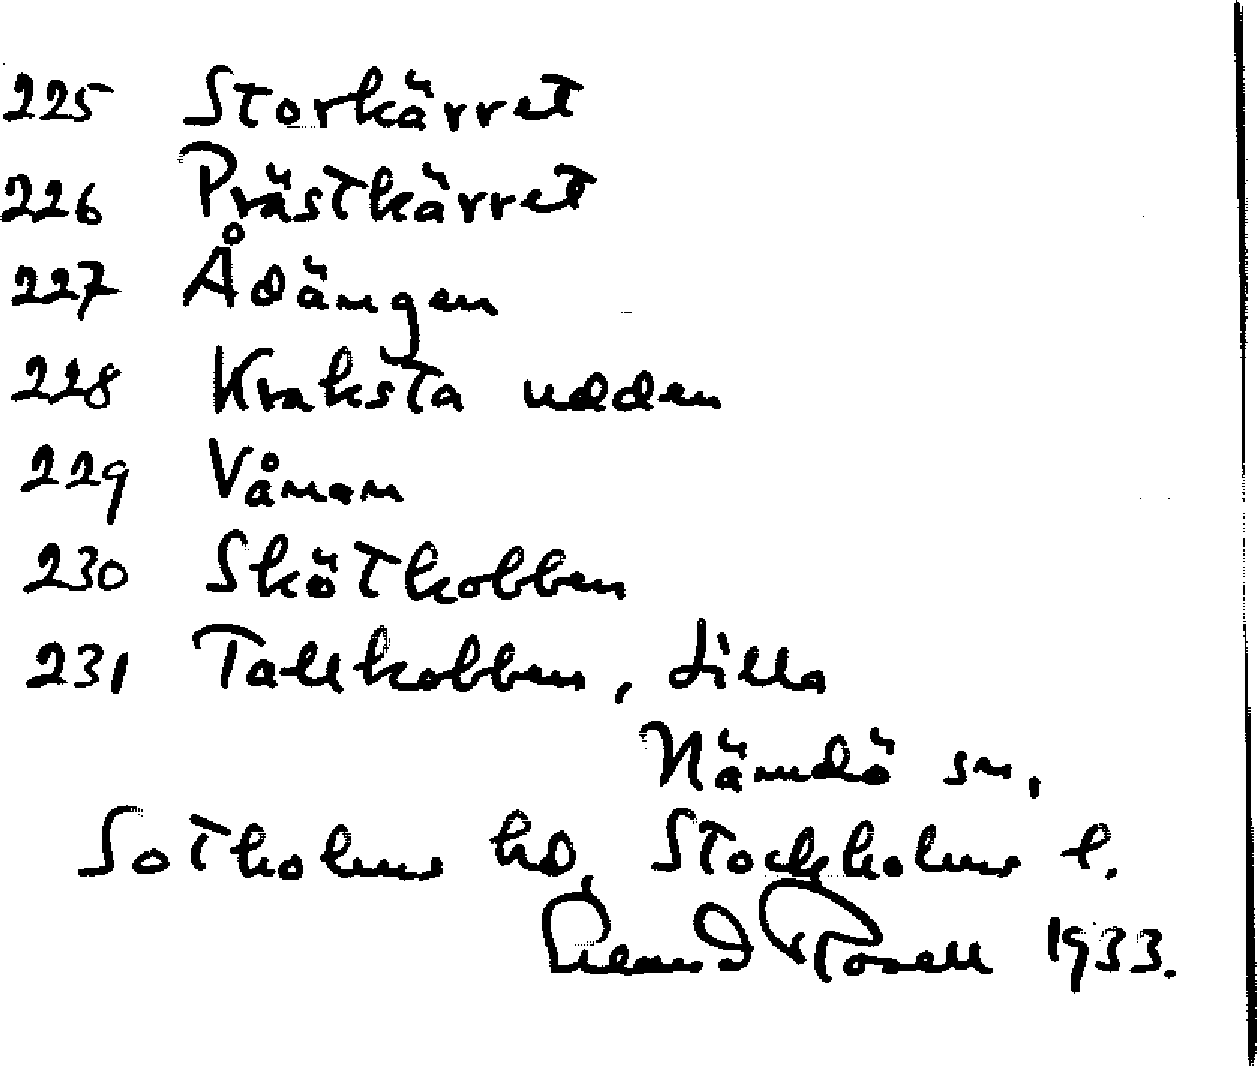 225 Storkärret
226 Prästkärret
227 Ådängen
228 Kraksta udden
229 Vånon
230 Skötkobben
231 Tallkobben, Lilla
Nämdö sn,
Sotholms hd, Stockholms l.
1933.